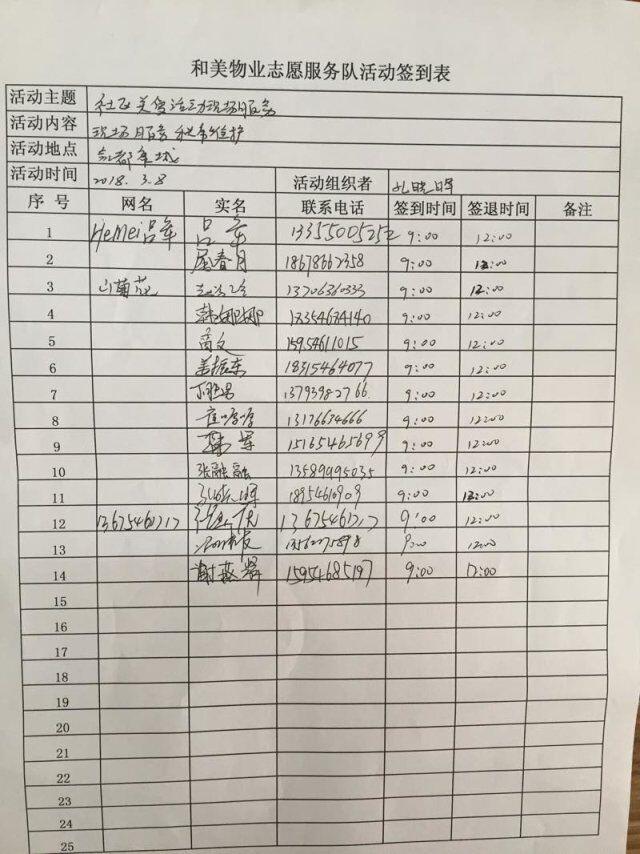 和美物业志愿服务队活动签到表
活动主题
活动内容 现场服务 秩序维护
活动地点
活动时间 2018. 3.8 活动组织者
序号 网名 实名 联系电话 签到时间 签退时间 备注
1 HeMei吕军 吕军 13355005252 9:00 12:00
2 屈春月 18678662358 9:00 12:00
3 山菊花 13706360333 9:00 12:00
4 韩娜娜 17354674140 9:00 12:00
5 高文 15954611015 9:00 12:00
6 盖振东 18315464077 9:00 12:00
7 13793982766 9:00 12:00
8 13176634666 9:00 12:00
9 15165465699 9:00 12:00
10 张融融 13589995035 9:00 12:00
11 18954610909 9:00 12:00
12 13675461717 13675461717 9:00 12:00
13 9:00 12:00
14 15954685197 9:00 12:00
15
16
17
18
19
20
21
22
23
24
25